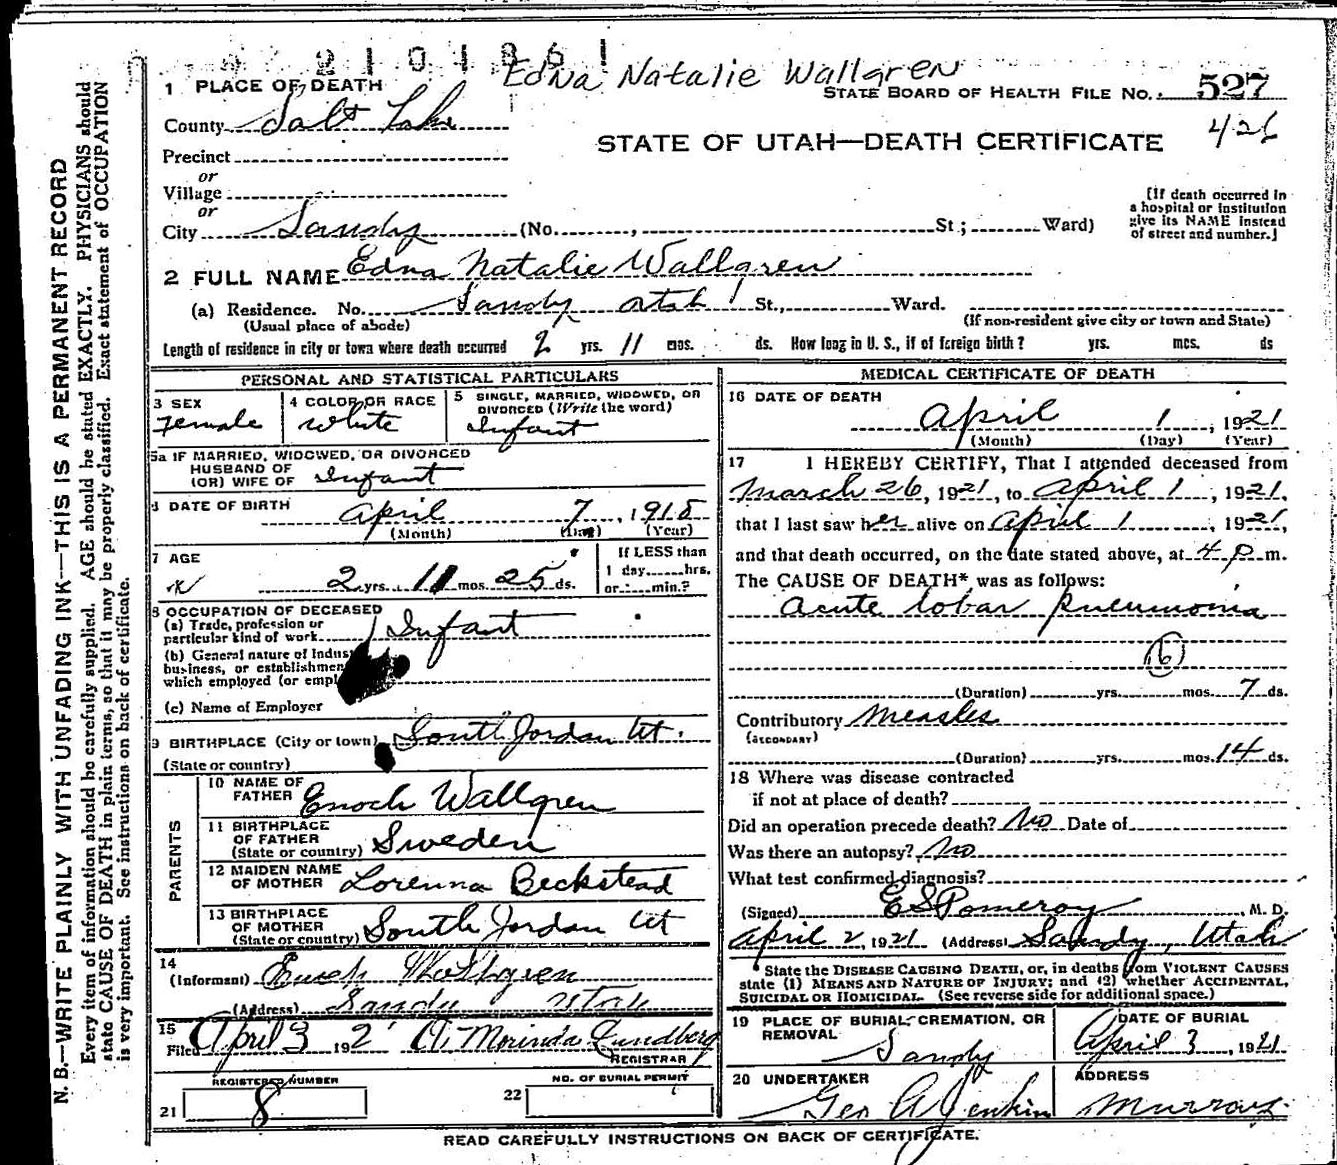 210486 1
Edna Natalie Wallgren
1 PLACE OF DEATH
STATE BOARD OF HEALTH FILE NO. 527
County Salt Lake
426
STATE OF UTAH—DEATH CERTIFICATE
Precinct
or
Village
or
City Sandy (No. , St; Ward)
[If death occurred in
a hospital or institution
give its NAME instead
of street and number.]
2 FULL NAME Edna Natalie Wallgren
(a) Residence. No. Sandy utah St., Ward.
(Usual place of abode)
(If non-resident give city or town and State)
Length of residence in city or town where death occurred 2 yrs. 11 mos. ds. How long in U. S., if of foreign birth? yrs. mos. ds
PERSONAL AND STATISTICAL PARTICULARS
3 SEX
Female
4 COLOR OR RACE
White
5 SINGLE, MARRIED, WIDOWED, OR
DIVORCED (Write the word)
Infant
5a IF MARRIED, WIDOWED, OR DIVORCED
HUSBAND OF
(OR) WIFE OF Infant
6 DATE OF BIRTH April 7, 1918
(Month) (Day) (Year)
7 AGE
2 yrs. 11 mos. 25 ds.
If LESS than
1 day hrs.
or min.?
8 OCCUPATION OF DECEASED
(a) Trade, profession or
particular kind of work Infant
(b) General nature of Indus
business, or establishmen
which employed (or empl
(c) Name of Employer
9 BIRTHPLACE (City or town) South Jordan Ut.
(State or country)
PARENTS
10 NAME OF
FATHER Enoch Wallgren
11 BIRTHPLACE
OF FATHER
(State or country) Sweden
12 MAIDEN NAME
OF MOTHER Lorenna Beckstead
13 BIRTHPLACE
OF MOTHER
(State or country) South Jordan Ut
14
(Informant) Enoch Wallgren
(Address) Sandy Utah
15
Filed April 3 192 A. Morinda Lundberg
REGISTRAR
REGISTERED NUMBER
21 8
NO. OF BURIAL PERMIT
22
MEDICAL CERTIFICATE OF DEATH
16 DATE OF DEATH
April 1, 1921
(Month) (Day) (Year)
17 I HEREBY CERTIFY, That I attended deceased from
March 26, 1921, to April 1, 1921,
that I last saw her alive on April 1, 1921,
and that death occurred, on the date stated above, at 4 P. m.
The CAUSE OF DEATH* was as follows:
Acute lobar pneumonia
(6)
(Duration) yrs. mos. 7 ds.
Contributory Measles
(SECONDARY)
(Duration) yrs. mos. 14 ds.
18 Where was disease contracted
if not at place of death?
Did an operation precede death? No Date of
Was there an autopsy? No
What test confirmed diagnosis?
(Signed) E S Pomeroy, M. D.
April 2, 1921 (Address) Sandy, Utah
*State the DISEASE CAUSING DEATH, or, in deaths from VIOLENT CAUSES
state (1) MEANS AND NATURE OF INJURY; and (2) whether ACCIDENTAL,
SUICIDAL OR HOMICIDAL. (See reverse side for additional space.)
19 PLACE OF BURIAL, CREMATION, OR
REMOVAL
Sandy
DATE OF BURIAL
April 3, 1921
20 UNDERTAKER
Geo A Jenkin
ADDRESS
Murray
READ CAREFULLY INSTRUCTIONS ON BACK OF CERTIFICATE.
N. B.—WRITE PLAINLY WITH UNFADING INK—THIS IS A PERMANENT RECORD
Every item of information should be carefully supplied. AGE should be stated EXACTLY. PHYSICIANS should
state CAUSE OF DEATH in plain terms, so that it may be properly classified. Exact statement of OCCUPATION
is very important. See instructions on back of certificate.